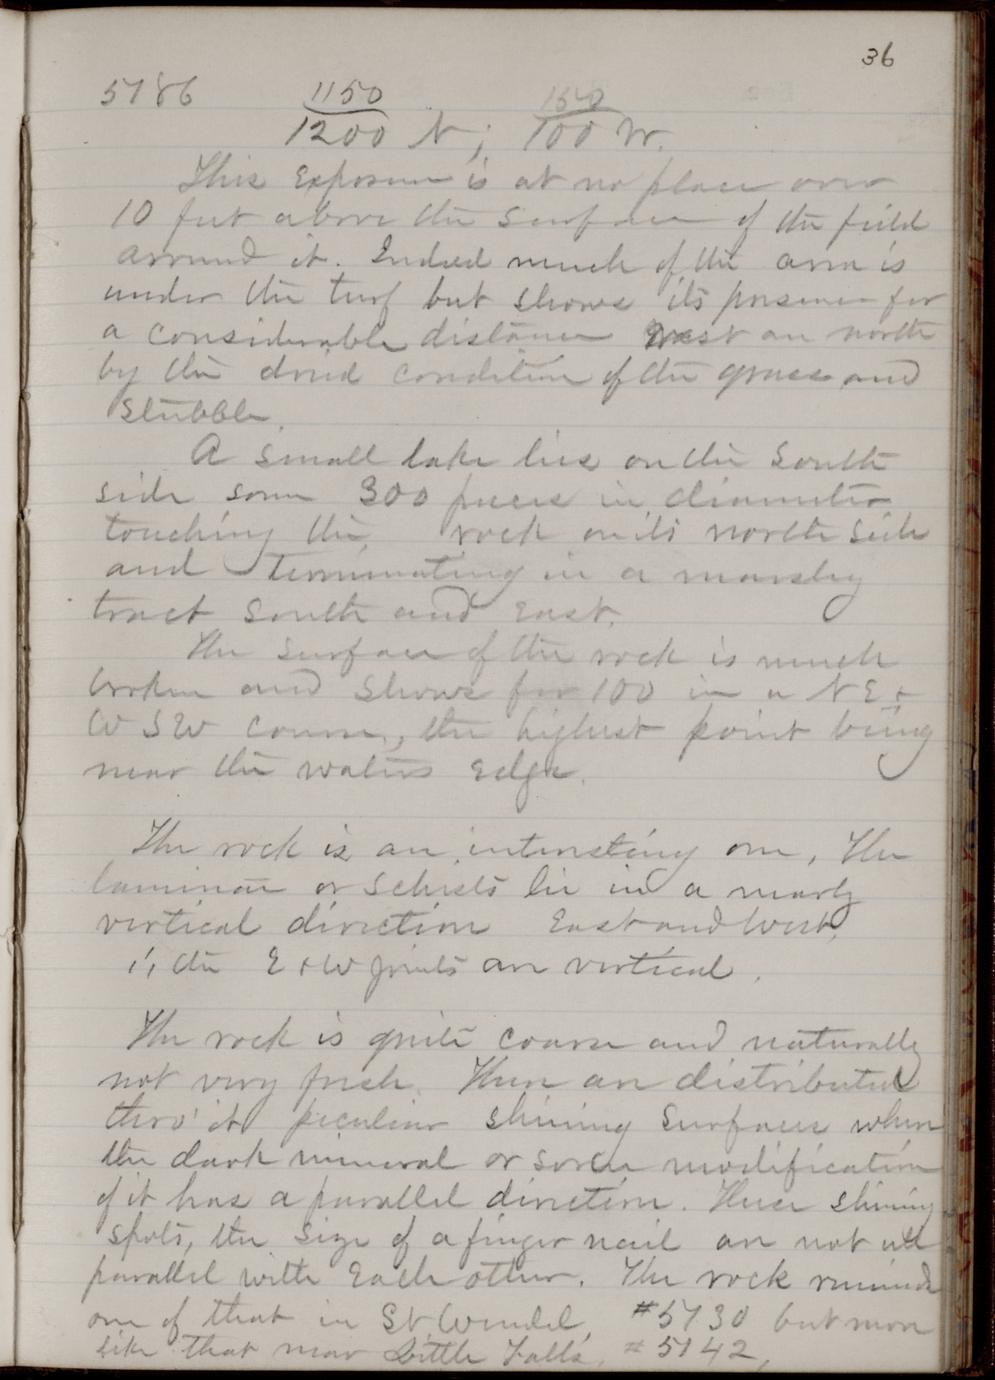 36
5186 1150 150
1200 N; 100 W.
This Exposure is at no place over
10 feet above the surface of the field
around it. Indeed much of the area is
under the turf but shows its presence for
a considerable distance West an north
by the dried condition of the grass and
stubble.
A small lake lies on the South
side some 300 paces in diameter
touching the rock on its north side
and terminating in a marshy
tract South and East.
The surface of the rock is much
broken and shows for 100 in a NE +
W SW course, the highest point being
near the waters edge.
The rock is an interesting one, The
laminae or schists lie in a nearly
vertical direction East and West,
i, the E + W joints are vertical.
The rock is quite coarse and naturally
not very fresh. There are distributed
thro' it peculiar shining surfaces where
the dark mineral or some modification
of it has a parallel direction. These shining
spots, the size of a finger nail are not all
parallel with each other. The rock reminds
one of that in St Wendel, #5130 but more
like that near Little Falls, #5142,